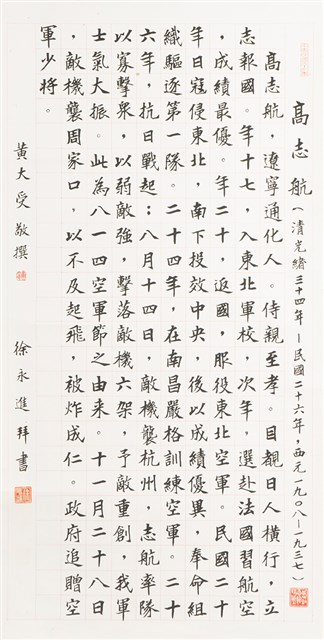 高志航（清光緒三十四年－民國二十六年，西元一九○八－一九三七）
高志航，遼寧通化人。侍親至孝。目覩日人橫行，立
志報國。年十七，入東北軍校，次年，選赴法國習航空
，成績最優。年二十，返國，服役東北空軍。民國二十
年日寇侵東北，南下投效中央，後以成績優異，奉命組
織驅逐第一隊。二十四年，在南昌嚴格訓練空軍。二十
六年，抗日戰起：八月十四日，敵機襲杭州，志航率隊
以寡擊眾，以弱敵強，擊落敵機六架，予敵重創，我軍
士氣大振。此為八一四空軍節之由來。十一月二十八日
，敵機襲周家口，以不及起飛，被炸成仁。政府追贈空
軍少將。
黃大受敬撰
徐永進拜書